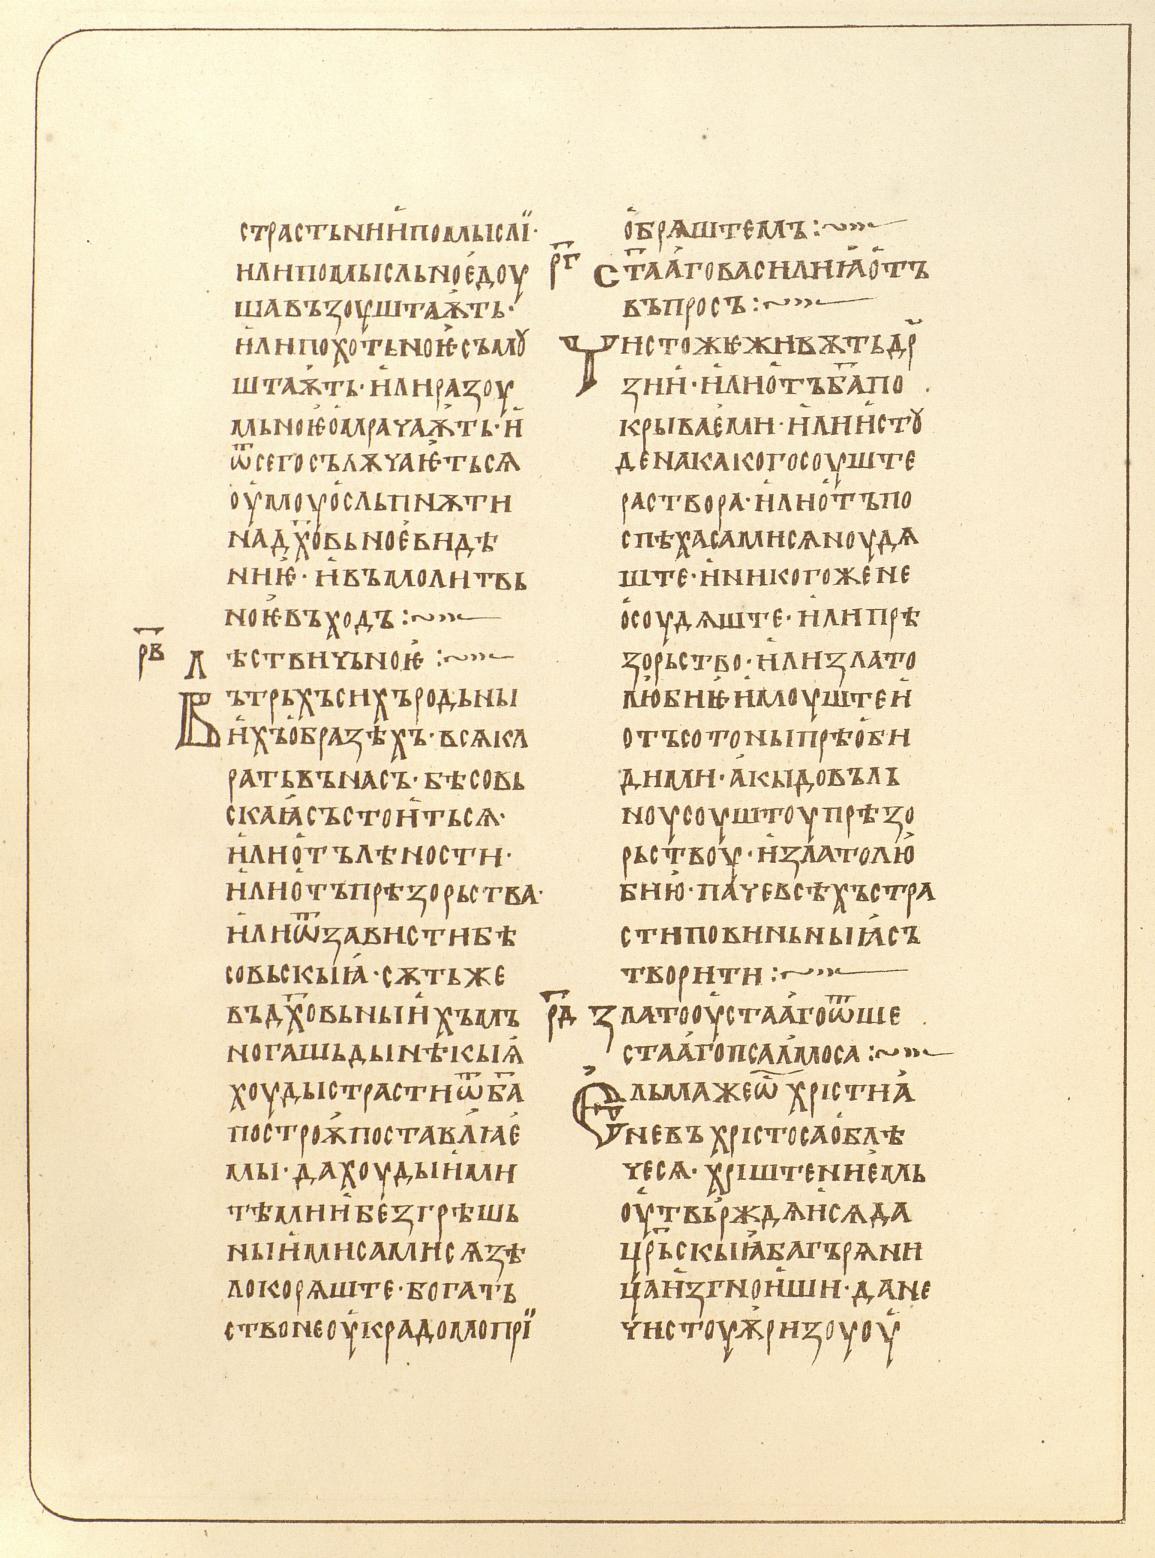 страстьнии помысли·
или помысльное доу
ша възоуштаѭть·
или похотьноѥ съмꙋ
штаѭть· или разоу
мьноѥ омрачаѭть· и
ѿ сего сълѫчаѥтьсѧ
оумоу ослѣпнѫти
на дх҃овьное видѣ
ниѥ· и въ молитвь
ноѥ въходъ :~
р҃в
Лѣствичьноѥ :~
Въ трьхъ сихъ родьны
ихъ образѣхъ· всѧ кл
рать въ насъ· бѣсовь
скаꙗ състоитьсѧ·
или отъ лѣности·
или отъ прѣзорьства·
или ѿ зависти бѣ
совьскыꙗ· сѫть же
въ дх҃овьныихъ мъ
ногашьды нѣкыѧ
хоуды страсти ѿ б҃а
по строѭ поставлꙗе
мы· да хоудыими
тѣми и безгрѣшь
ныими сами сѧ зѣ
ло корѧште· богать
ство неоукрадомо при
обрѧштемъ :~
р҃г
Ст҃ааго василиꙗ отъ
въпросъ :~
Чисто же живѫть др҃
зии· или отъ б҃а по
крываеми· или истꙋ
дена какого соуште
раствора· или отъ по
спѣха сами сѧ ноудѧ
ште· и никогоже не
осоудѧште· или прѣ
зорьство· или злато
любиѥ имоуштеи
отъ сотоны прѣоби
дими· акы довъль
ноу соуштоу прѣзо
рьствоу· и златолю
бию· паче всѣхъ стра
сти повиньныꙗ съ
творити :~
р҃д
Златооустааго ѿ ше
стааго псалмоса :~
Ельма же ѿ христиа
не въ христоса облѣ
чесѧ· хрiштениемь
оутвьрждѧисѧ да
цр҃ьскыꙗ багърѧни
ца изгноиши· да не
чистоуѭ ризоу оу